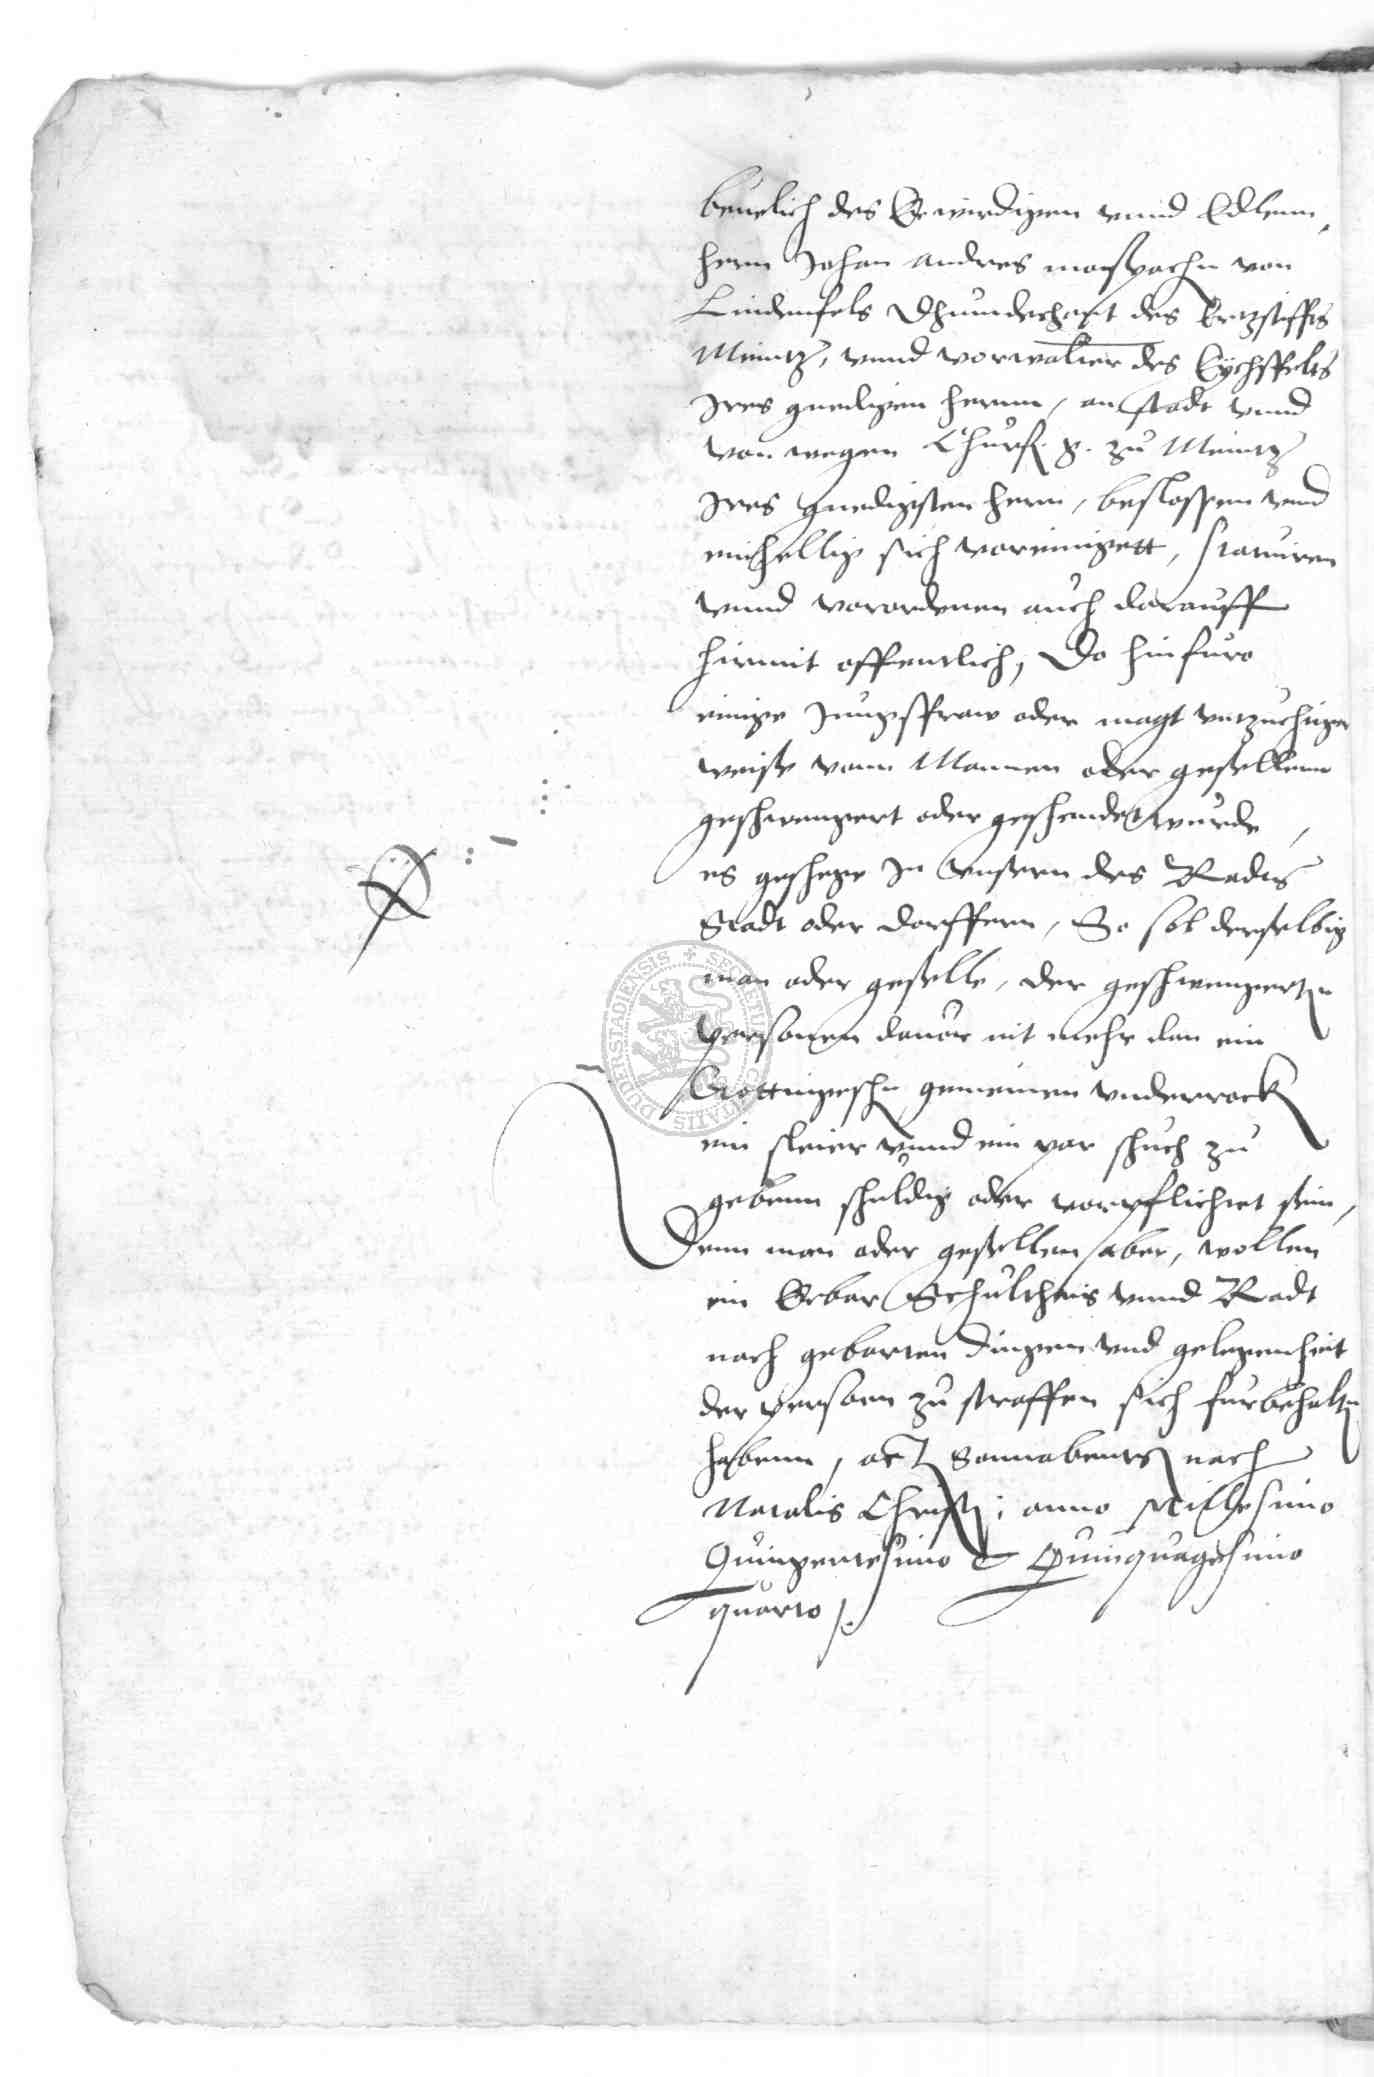 beuelich des Erwirdigen vnnd Edlenn,
hern Johan Andres mospachn von
Lindenfels Dhumdechant des Ertzstiffts
Meintz, vnnd vorwalter des Eychsfelts
Jres gnedigen hernn, an stadt vnnd
von wegen Churf. g. zu Meintz
Jres gnedigsten hern, beslossen vnnd
einhellig sich voreinigett, statuiren
vnnd vorordenen auch darauff
hirmit offentlich, Do hinfuro
einige Jungsfraw oder magt vntzuchtiger
weise vonn Mannen oder gesellenn
geschwengert oder geschendet wurde,
es geschege In vnsern des Radts
Stadt oder dorffern, So sol derselbig
man oder geselle, der geschwengertn
personen dauor nit mehr dan ein
Gottingeschn gemeinen vnderrock
ein sleier vnnd ein par schuch zu
gebenn schuldig oder vorpflichtet sein,
Denn man oder gesellen aber, wollen
ein Erbar Schultheis vnnd Radt
nach gebarten dingen vnd gelegenheit
der personn zu straffen sich furbehaltn
habenn, act Sonnabents nach
Natalis Christi anno Millesimo
Quingentesimo & Quinquagesimo
quarto
SECRETUM CIVITATIS DUDERSTADIENSIS